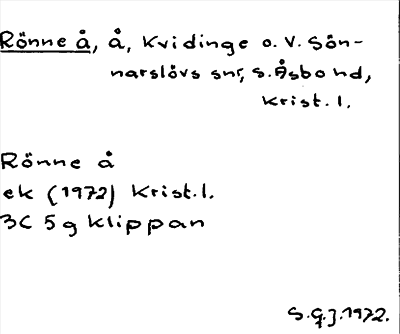 Rönne å, å, Kvidinge o. V. Sön-
narslövs snr, S. Åsbo hd,
Krist. l.
Rönne å
ek (1972) Krist. l.
3C 5g Klippan
S.G.J. 1972.